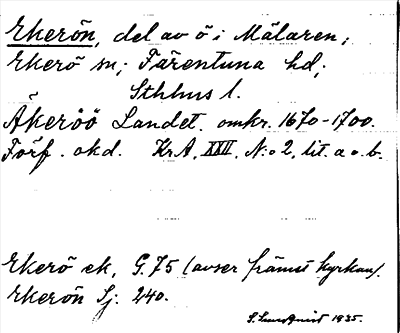 Ekerön, del av ö i Mälaren;
Ekerö sn; Färentuna hd;
Sthlms l.
Åkeröö Landet. omkr. 1670-1700.
Förf. okd. KrA. XXII. N:o 2, lit. a o. b.
Ekerö ek, G. 75 (avser främst kyrkan).
Ekerön Sj. 240.
1935.